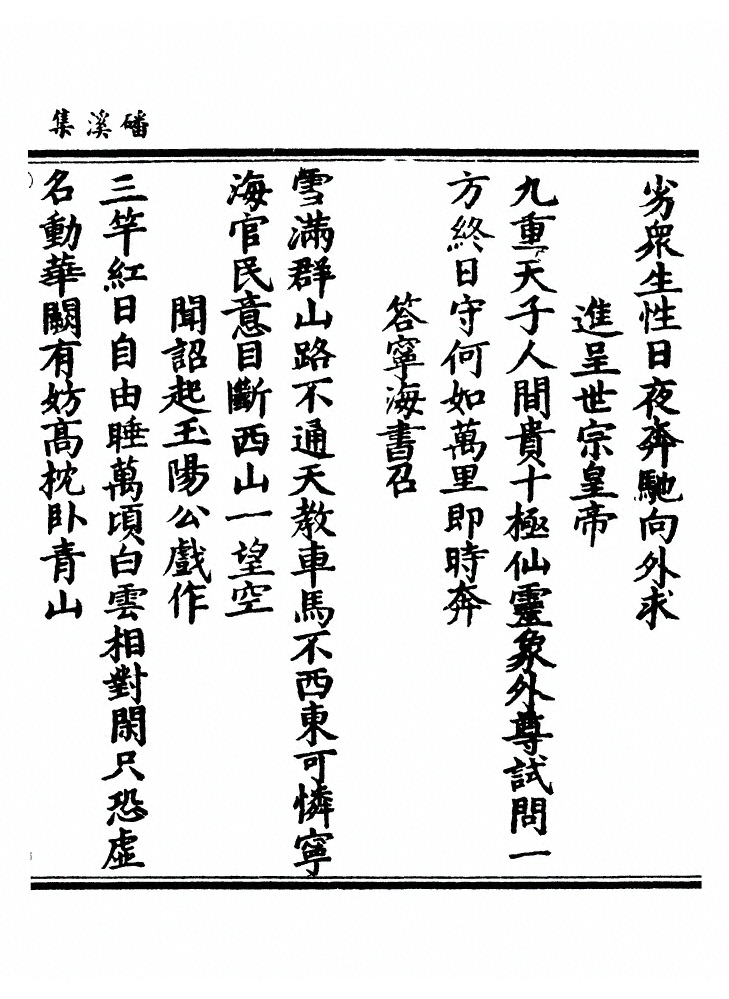 磻溪集
劣眾生性日夜奔馳向外求
進呈世宗皇帝
九重天子人間貴十極仙靈象外尊試問一
方終日守何如萬里即時奔
答寧海書召
雪滿群山路不通天教車馬不西東可憐寧
海官民意目斷西山一望空
聞詔起玉陽公戲作
三竿紅日自由睡萬頃白雲相對閑只恐虛
名動華闕有妨高枕臥青山